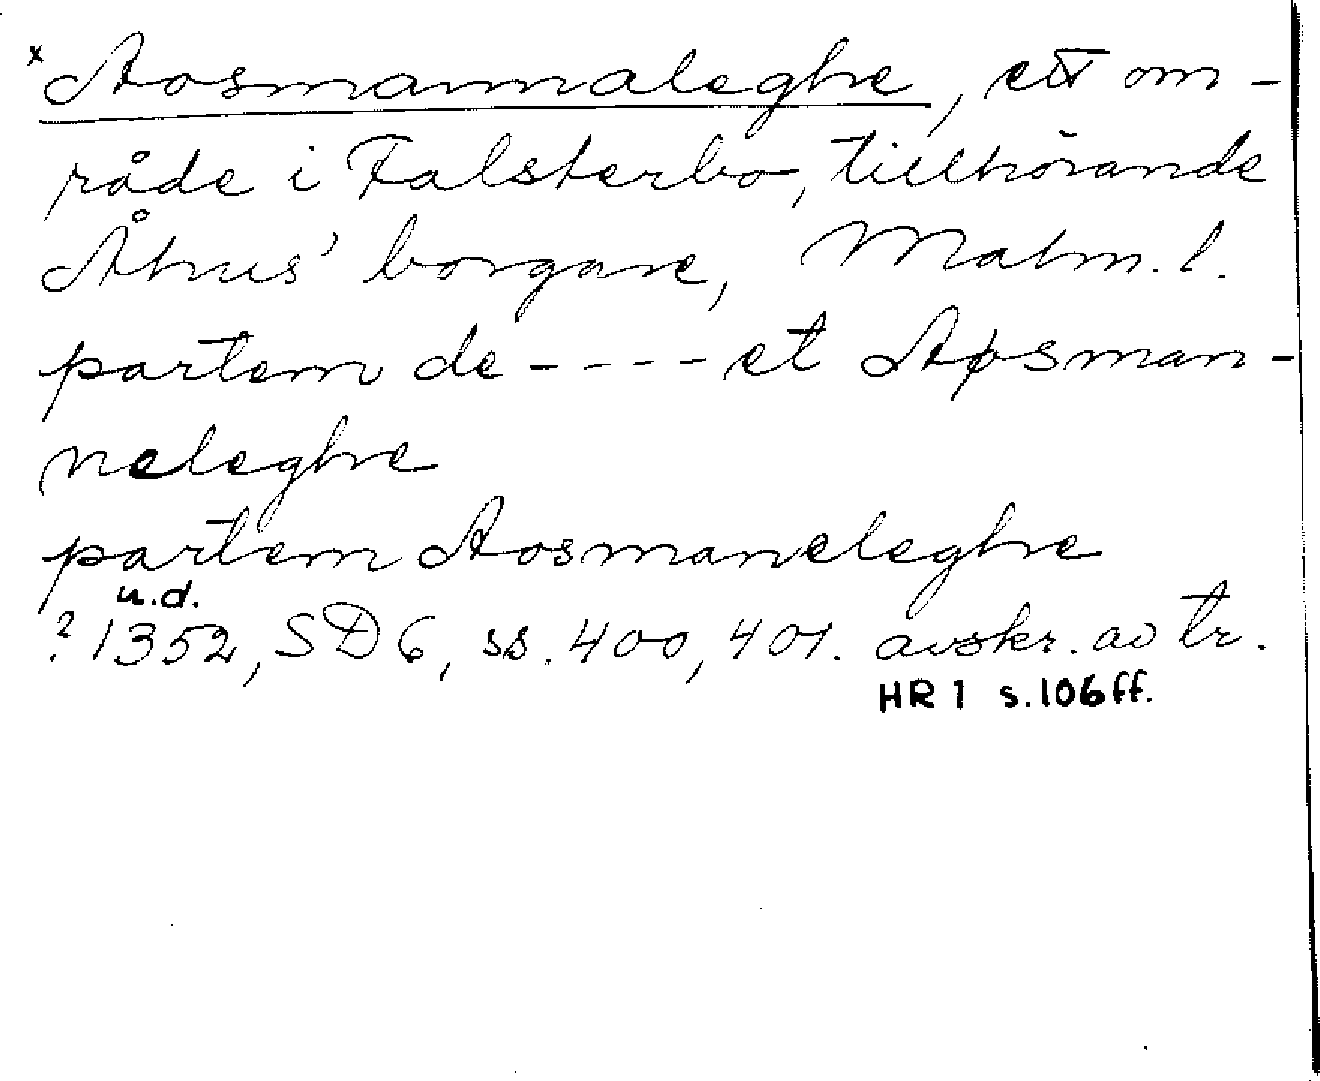 x Aosmannaleghe, ett om-
råde i Falsterbo, tillhörande
Åhus' borgare, Malm. l.
partem de - - - - et Aøsman-
neleghe
partem Aosmaneleghe
u.d.
? 1352, SD 6, ss. 400, 401. avskr. av tr.
HR 1 s. 106 ff.